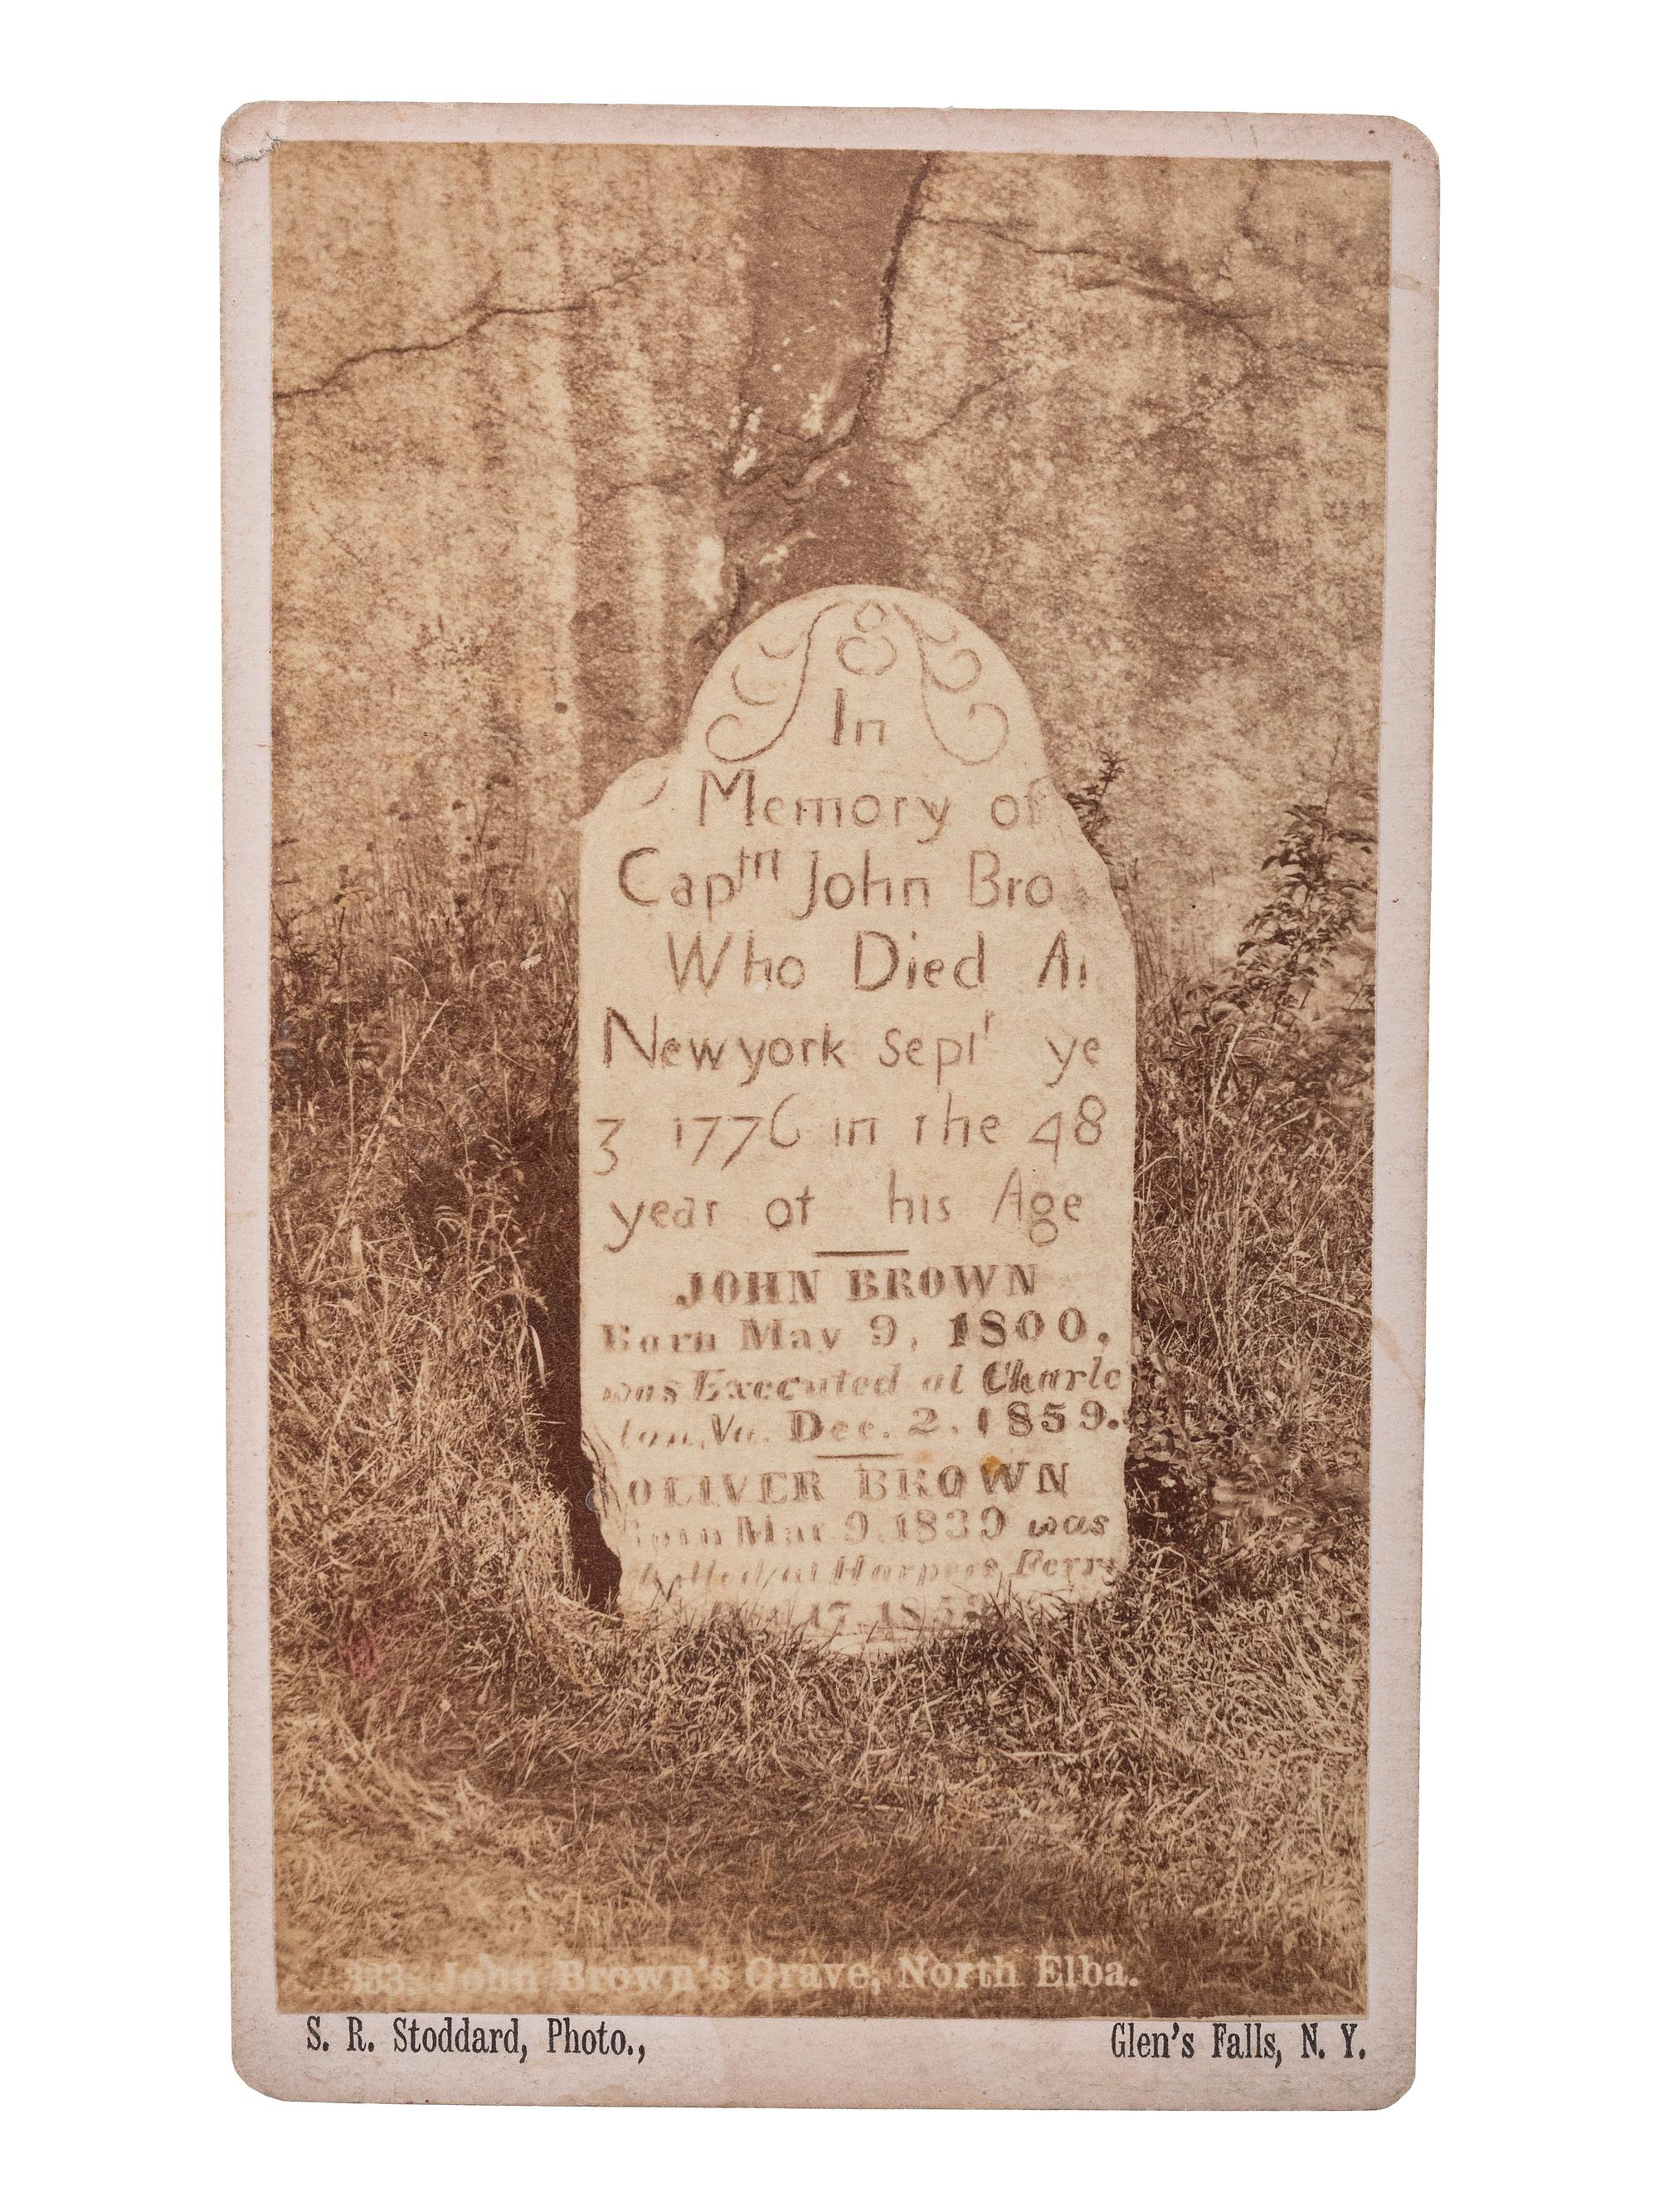 In
Memory of
Captn John Bro
Who Died At
Newyork Septr ye
3 1776 in the 48
year of his Age
JOHN BROWN
Born May 9, 1800,
was Executed at Charle
ton, Va. Dec. 2. 1859.
OLIVER BROWN
Born Mar 9. 1839 was
Killed at Harpers Ferry
17. 1859
333. John Brown's Grave, North Elba.
S. R. Stoddard, Photo., Glen's Falls, N. Y.